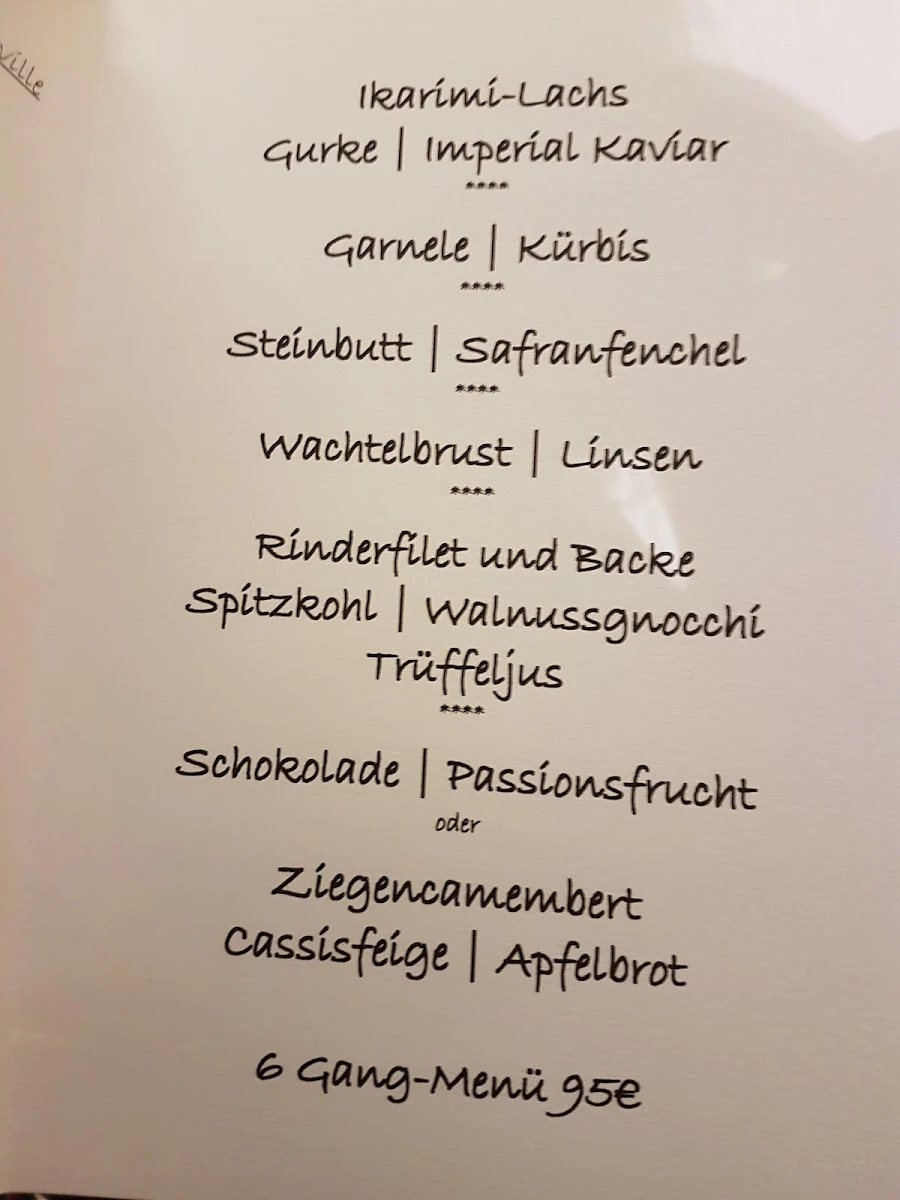 ville
Ikarimi-Lachs
Gurke | Imperial Kaviar
****
Garnele | Kürbis
****
Steinbutt | Safranfenchel
****
Wachtelbrust | Linsen
****
Rinderfilet und Backe
Spitzkohl | Walnussgnocchi
Trüffeljus
****
Schokolade | Passionsfrucht
oder
Ziegencamembert
Cassisfeige | Apfelbrot
6 Gang-Menü 95€